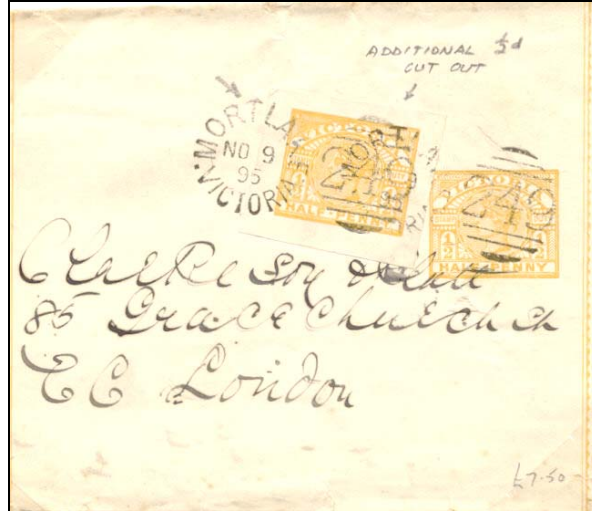 ADDITIONAL ½d
CUT OUT
MORTLA
NO 9
95
VICTORIA
VICTORIA
HALF-PENNY
MORT
VICTORIA
245
½
½
HALF-PENNY
Clarke Son & Platt
85 Gracechurch St
EC London
£7.50